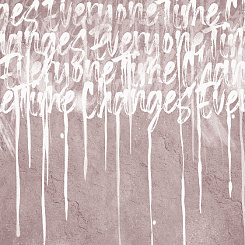 ges Everyone Time
hanges Everyone Tim
Everyone Time Chan
e Time Changes Ever